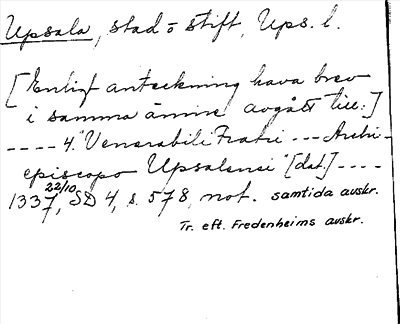 Upsala, stad o stift, Ups. l.
[Enligt anteckning hava brev
i samma ämne avgått till:]
---- 4. "Venerabili Fratri --- Archi-
episcopo Upsalensi" [dat.] ----
1337 22/10, SD 4, s. 578, not. samtida avskr.
Tr. eft. Fredenheims avskr.